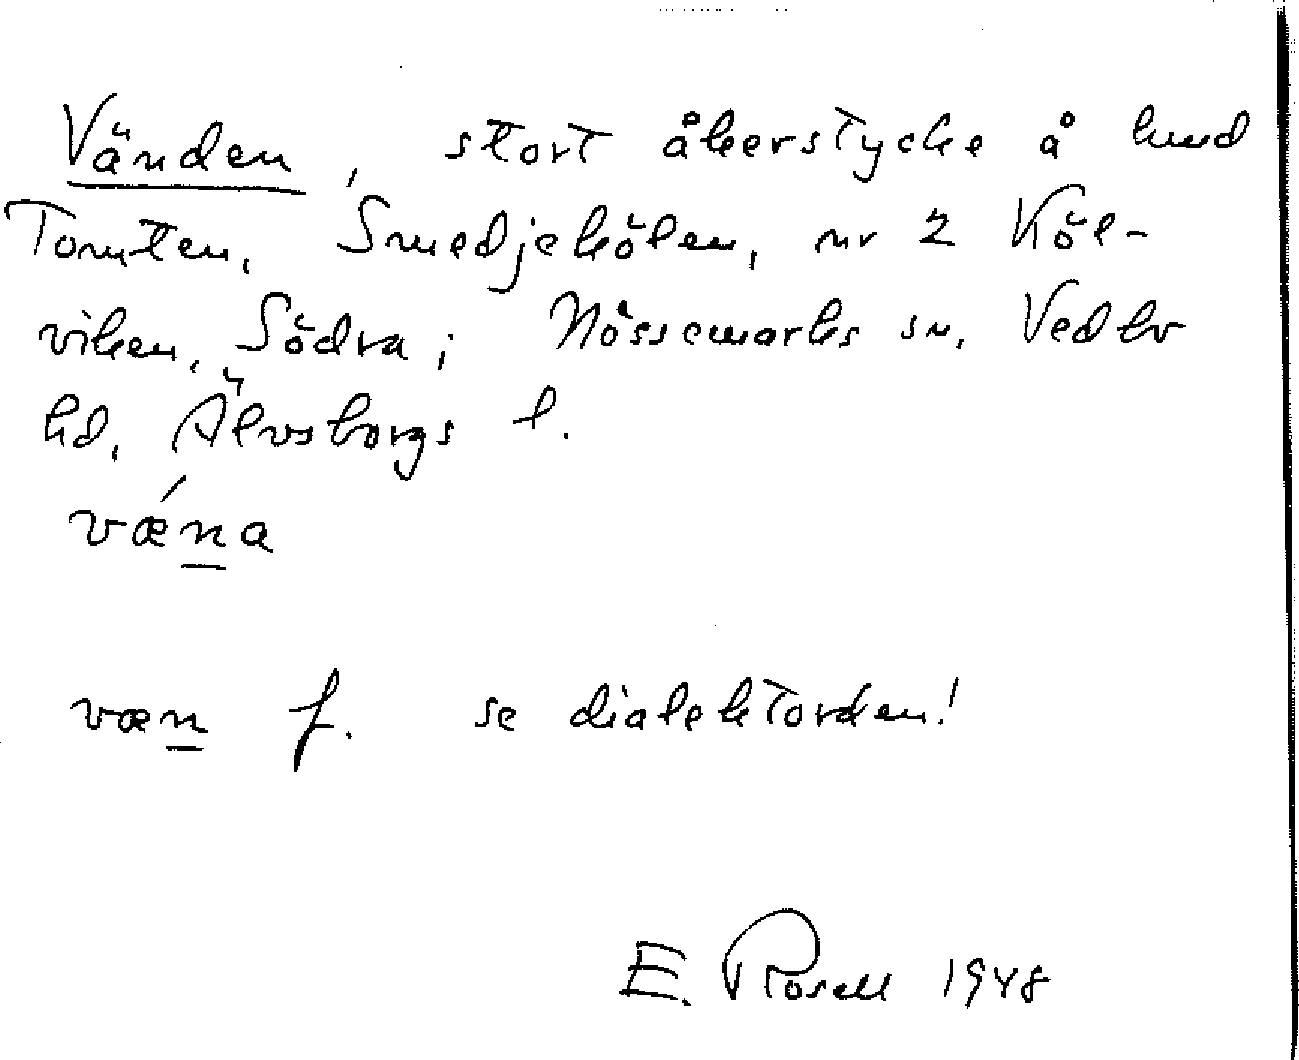 Vänden, stort åkerstycke å hmd
Tomten, Smedjekölen, nr 2 Köl-
viken, Södra; Nössemarks sn, Vedbo
hd, Älvsborgs l.
vǽna
væn f. se dialektorden!
E. Rosell 1948